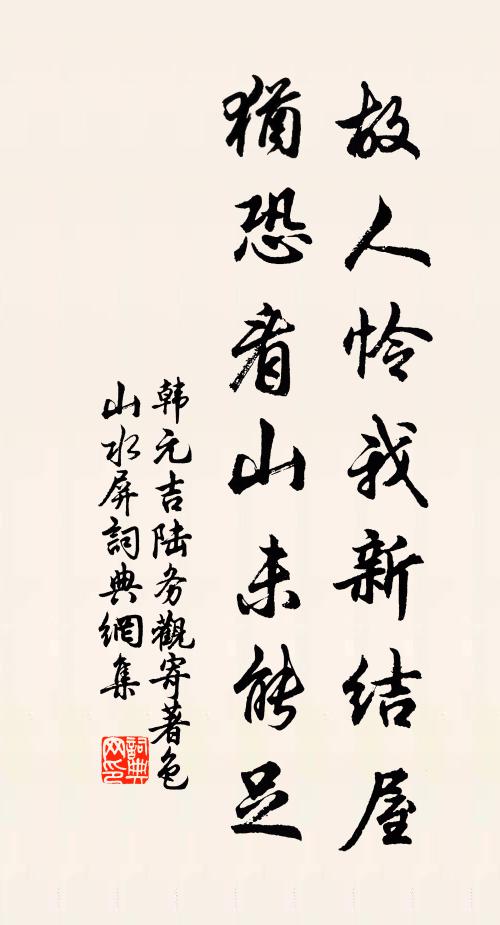 故人怜我新结屋
犹恐看山未能足
韩元吉陆务觀寄著色
山水屏詞典網集
詞典网印